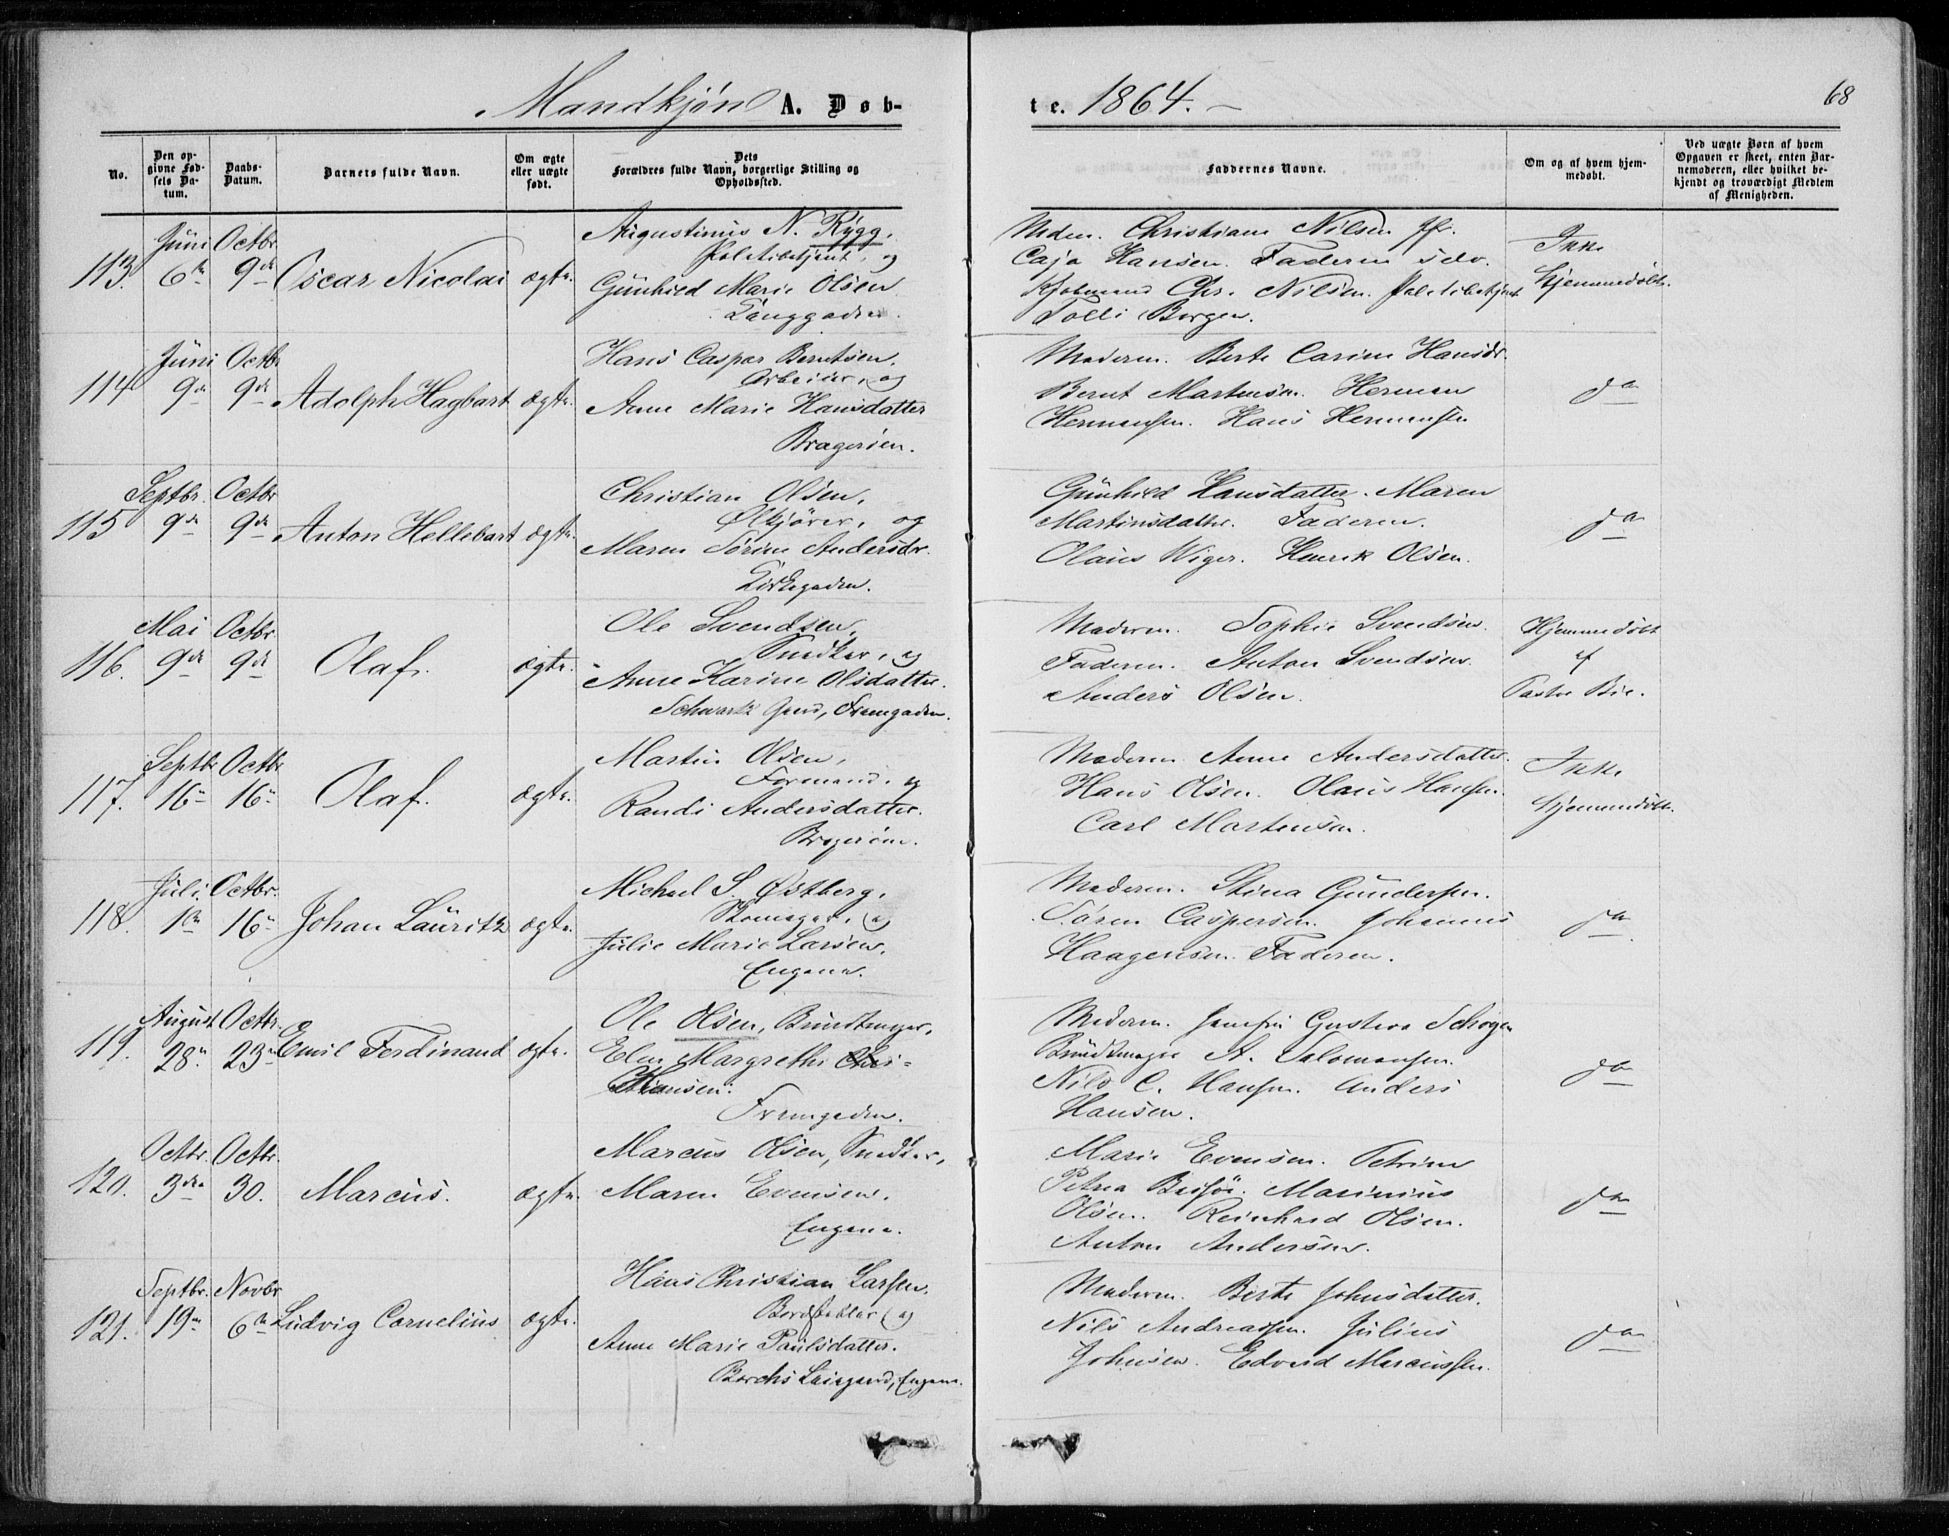 Mandkjøn A. Døb-
te. 1864.
68
No.
Den op-
givne Fød-
sels Da-
tum.
Daabs-
Datum.
Barnets fulde Navn.
Om ægte
eller uægte
født.
Dets
Forældres fulde Navn, borgerlige Stilling og
Opholdssted.
Faddernes Navne.
Om og af hvem hjem-
medøbt.
Ved uægte Børn af hvem
Opgaven er skeet, enten Bar-
nemoderen, eller hvilket be-
kjendt og troværdigt Medlem
af Menigheden.
113. Juni 6te Octbr 9de Oscar Nicolai ægte.
Augustinus N. Rygg,
Politibetjent, og
Gunhild Marie Olsen
Langgaden.
Mdm. Christiane Nilsen Jfr.
Caja Hansen. Faderen selv.
Kjøbmand Chr. Nilsen. Politibetjent
Tolli Borgen.
Ikke
hjemmedøbt.
114 Juni 9de Octbr 9de Adolph Hagbart ægte.
Hans Caspar Berntsen,
Arbeider, og
Anne Marie Hansdatter
Bragerøen.
Moderen. Berte Carine Hansdr.
Bernt Martinsen. Herman
Hermansen. Hans Hermansen
do
115 Septbr. 9de Octbr 9de Anton Hellebart ægte.
Christian Olsen,
Ølkjører, og
Maren Sørine Andersdr.
Kirkegaden.
Gunhild Hansdatter. Maren
Martinsdatter. Faderen.
Olaus Wiger. Henrik Olsen.
do
116. Mai 9de Octbr. 9de Olaf. ægte.
Ole Svendsen,
Snedker, og
Anne Karine Olsdatter.
Schwartz Gaard, Fremgaden.
Moderen. Sophie Svendsen.
Faderen. Anton Svendsen.
Anders Olsen.
Hjemmedøbt
af
Pastor Bie.
117. Septbr 16de Octbr 16de Olaf. ægte.
Martin Olsen,
Formand, og
Randi Andersdatter.
Bragerøen.
Moderen. Anne Andersdatter.
Hans Olsen. Olaus Hansen.
Carl Martinsen.
Ikke
hjemmedøbt.
118. Juli. 1te Octbr. 16de Johan Lauritz ægte.
Michael S. Østberg,
Skomager, og
Julie Marie Larsen,
Engene.
Moderen. Stina Gundersen.
Søren Caspersen. Johannes
Haagensen. Faderen.
do
119. August 28de Octbr. 23de Emil Ferdinand ægte.
Ole Olsen, Bundtmager,
Elen Margrethe Chri-
Hansen.
Fremgaden.
Moderen. Gustava
Bundtmager A. Salomonsen.
Nils C. Hansen. Anders
Hansen.
do
120. Octbr. 3die Octbr. 30. Marcus. ægte.
Marcus Olsen, Snedker,
Maren Evensen.
Engene.
Marie Evensen.
Petra Marinius
Olsen. Reinhard Olsen.
Anton Andersen.
do
121. Septbr. 19de Novbr 6te Ludvig Cornelius ægte.
Hans Christian Larsen,
Bordstabler og
Anne Marie Paulsdatter.
Borchs Engene.
Moderen. Berte Johnsdatter.
Nils Andreassen. Julius
Johnsen. Edvard Marcussen.
do